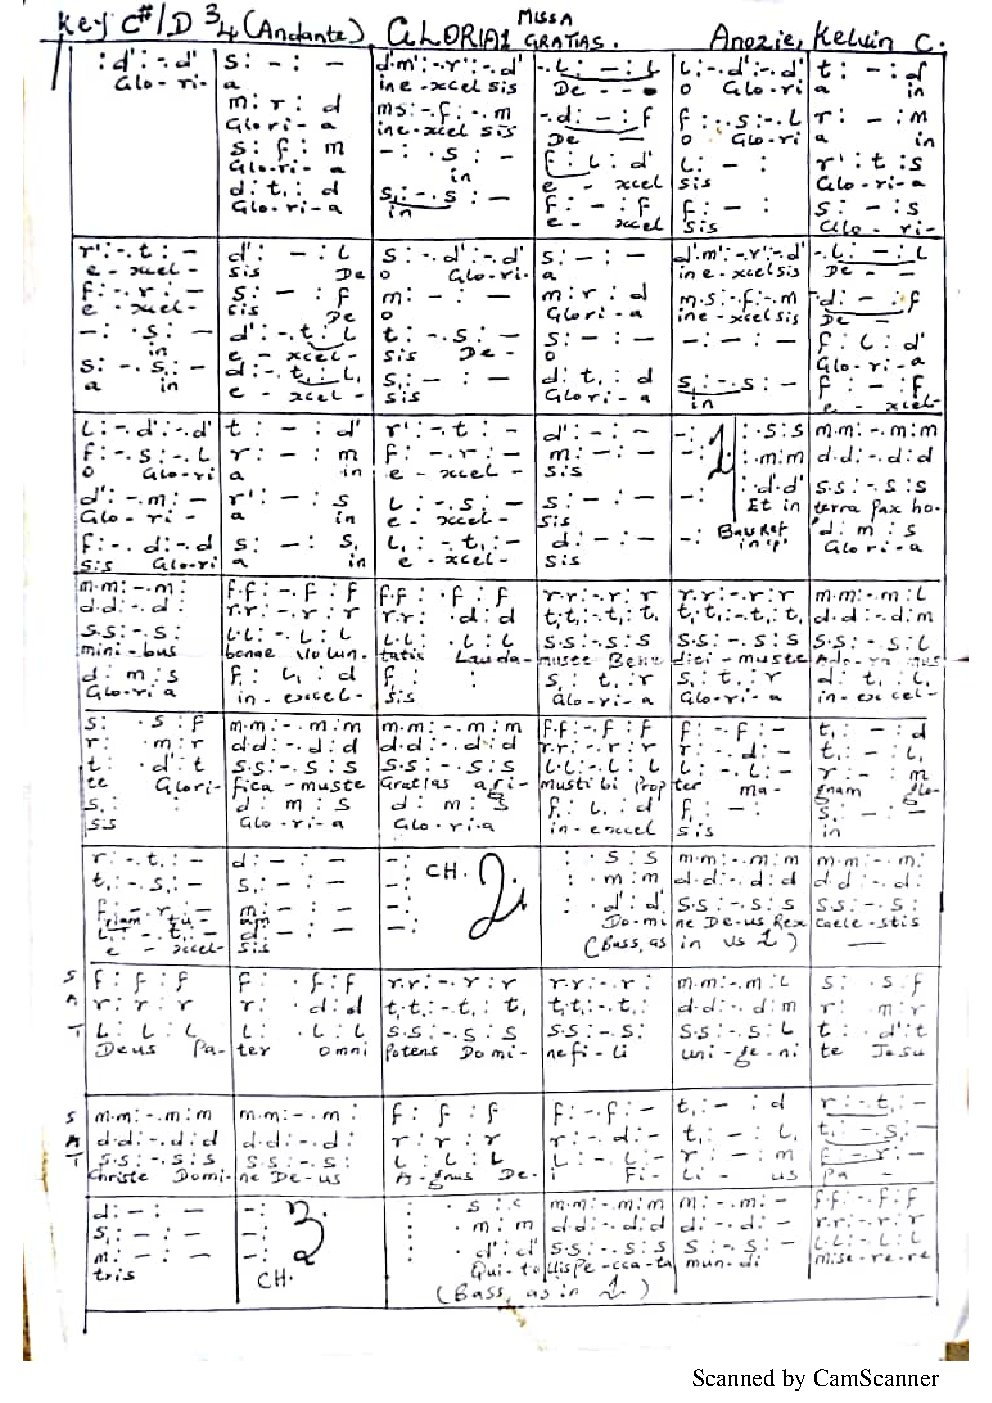 Key C#/D 3/4 (Andante) GLORIA1 MISSA GRATIAS. Anozie, Kelvin C.
: d' : -. d' | s : - : - | d'.m' : -. r' : -. d' | -. L : - : L | L : -. d' : -. d' | t : - : d'
Glo-ri- | a | in e-xcel sis | De - - | o Glo-ri | a in
m : r : d | m s : -. f : -. m | -. d : - : f | f : -. s : -. L | r : - : m
Glo ri-a | in e-xcel sis | De - | o Glo-ri | a in
s : f : m | - : . s : - | f : L : d' | L : - : | r' : t : s
Glo-ri-a | in | e - xcel | sis | Glo-ri-a
d : t, : d | s, : -. s : - | f : - : f | f : - : | s : - : s
Glo-ri-a | in | e - xcel | sis | Glo-ri-
r' : -. t : - | d' : - : L | s : -. d' : -. d' | s : - : - | d'.m' : -. r' : -. d' | -. L : - : L
e-xcel- | sis De | o Glo-ri- | a | in e-xcelsis | De - -
f : -. r : - | s : - : f | m : - : - | m : r : d | m.s : -. f : -. m | -. d : - : f
e-xcel- | sis De | o | Glori-a | in e-xcelsis | De -
- : . s : - | d' : -. t : L | t : -. s : - | s : - : - | - : - : - | f : L : d'
in | e-xcel- | sis De- | o | Glo-ri-a
s : -. s, : - | d : -. t, : L, | s, : - : - | d : t, : d | s, : -. s : - | f : - : F,
a in | e - xcel- | sis | Glori-a | in | e-xcel-
L : -. d' : -. d' | t : - : d' | r' : -. t : - | d' : - : - | - : 1 : . s : s | m.m : -. m : m
f : -. s : -. L | r : - : m | f : -. r : - | m : - : - | - : : . m : m | d.d : -. d : d
o Glo-ri | a in | e-xcel- | sis
d' : -. m : - | r' : - : s | L : -. s : - | s : - : - | - : : . d' : d' | s.s : -. s : s
Glo-ri- | a in | e-xcel- | sis | Et in | terra Pax ho-
f : -. d : -. d | s : - : s, | L, : -. t, : - | d : - : - | - | d : m : s
sis Glo-ri | a in | e-xcel- | sis | Glori-a
m.m : -. m : | f.f : -. f : f | f.f : . f : f | r.r : -. r : r | r.r : -. r : r | m.m : -. m : L
d.d : -. d : | r.r : -. r : r | r.r : . d : d | t,.t, : -. t, : t, | t,.t, : -. t, : t, | d.d : -. d : m
s.s : -. s : | L.L : -. L : L | L.L : . L : L | s.s : -. s : s | s.s : -. s : s | s.s : -. s : L
mini-bus | bonae Volun- | tatis Lauda- | muste Bene | dici-muste | Ado-ra mus
d : m : s | f, : L, : d | f, : : | s, : t, : r | s, : t, : r | d : t, : L,
Glo-ri a | in-excel- | sis | Glo-ri-a | Glo-ri-a | in-excel-
s : . s : f | m.m : -. m : m | m.m : -. m : m | f.f : -. f : f | f : -. f : - | t, : - : d
r : . m : r | d.d : -. d : d | d.d : -. d : d | r.r : -. r : r | r : -. d : - | t, : - : L,
t : . d' : t | s.s : -. s : s | s.s : -. s : s | L.L : -. L : L | L : -. L : - | r : - : m
te Glori- | fica-muste | Gratias agi- | mustibi Prop | ter ma- | gnam glo-
s, : : | d : m : s | d : m : s | f, : L, : d | f, : - : | s, : - : -
sis | Glo-ri-a | Glo-ri-a | in-excel | sis | in
r : -. t, : - | d : - : - | - : CH. 2. | : . s : s | m.m : -. m : m | m.m : -. m :
t, : -. s, : - | s, : - : - | - : | : . m : m | d.d : -. d : d | d.d : -. d :
f : -. r : - | m : - : - | - : | : . d' : d' | s.s : -. s : s | s.s : -. s :
riam tu- | am | Do-mi | ne De-us Rex | caele-stis
L, : -. t, : - | d : - : - | - :
e - xcel- | sis | (Bass, as in vs 1)
S f : f : f | f : . f : f | r.r : -. r : r | r.r : -. r : | m.m : -. m : L | s : . s : f
A r : r : r | r : . d : d | t,.t, : -. t, : t, | t,.t, : -. t, : | d.d : -. d : m | r : . m : r
T L : L : L | L : . L : L | s.s : -. s : s | s.s : -. s : | s.s : -. s : L | t : . d' : t
Deus Pa- | ter omni | Potens Domi- | ne fi-li | uni-ge-ni | te Jesu
S m.m : -. m : m | m.m : -. m : | f : f : f | f : -. f : - | t, : - : d | r : -. t, : -
A d.d : -. d : d | d.d : -. d : | r : r : r | r : -. d : - | t, : - : L, | t, : -. s, : -
T s.s : -. s : s | s.s : -. s : | L : L : L | L : -. L : - | r : - : m | f : -. r : -
Christe Domi- | ne De-us | A-gnus De- | i Fi- | Li - us | Pa -
d : - : - | - : 3. | : . s : s | m.m : -. m : m | m : -. m : - | f.f : -. f : f
s, : - : - | - : | : . m : m | d.d : -. d : d | d : -. d : - | r.r : -. r : r
m : - : - | - : | : . d' : d' | s.s : -. s : s | s : -. s : - | L.L : -. L : L
tris | CH. | Qui-to | llis Pe-cca-ta | mun-di | mise-re-re
(Bass, as in 1)
Scanned by CamScanner